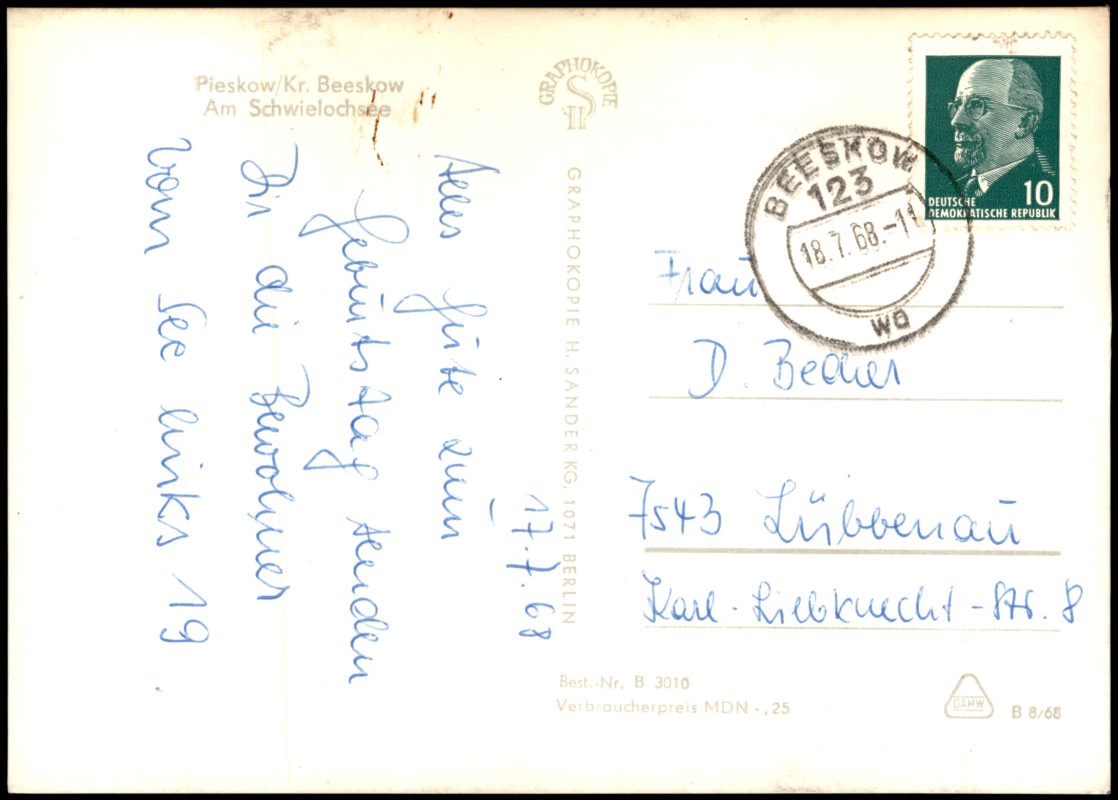 Pieskow/Kr. Beeskow
Am Schwielochsee
17.7.68
Alles Gute zum
Geburtstag senden
Dir die Bewohner
vom See links 19.
GRAPHOKOPIE
H S
GRAPHOKOPIE H. SANDER KG, 1071 BERLIN
DEUTSCHE
DEMOKRATISCHE REPUBLIK
10
BEESKOW
123
18.7.68.-1
wa
Frau
D. Becher
7543 Lübbenau
Karl-Liebknecht-Str. 8
Best.-Nr. B 3010
Verbraucherpreis MDN -,25
DAMW
B 8/68